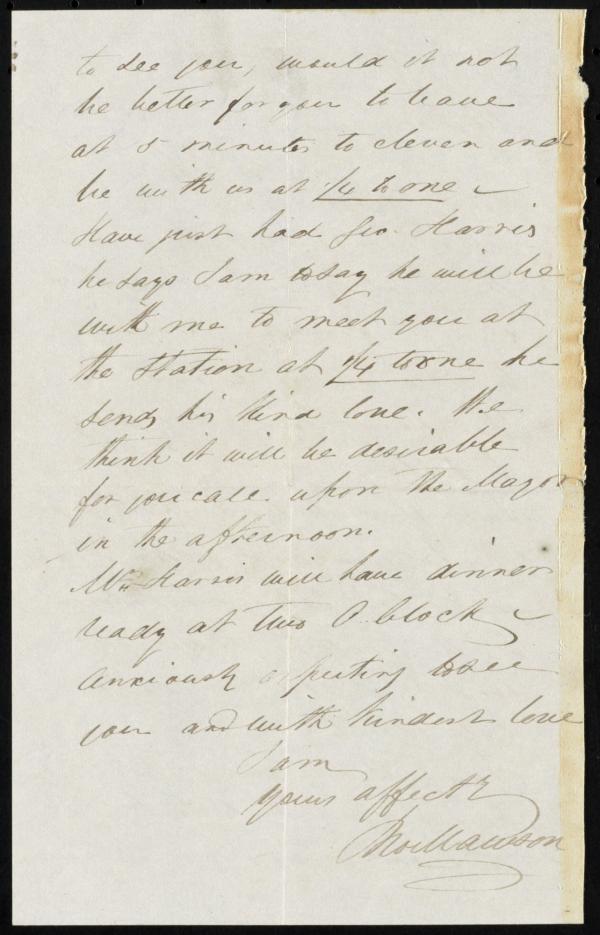 to see you, would it not
be better for you to leave
at 5 minutes to eleven and
be with us at 1/4 to one –
Have just had Geo. Harris
he says I am to say he will be
with me to meet you at
the Station at 1/4 to one he
sends his kind love. We
think it will be desirable
for you call upon the Mayor
in the afternoon.
Mrs Harris will have dinner
ready at two O'Clock
Anxiously expecting to see
you and with kindest love
I am
Yours affecty
Jno Mawson